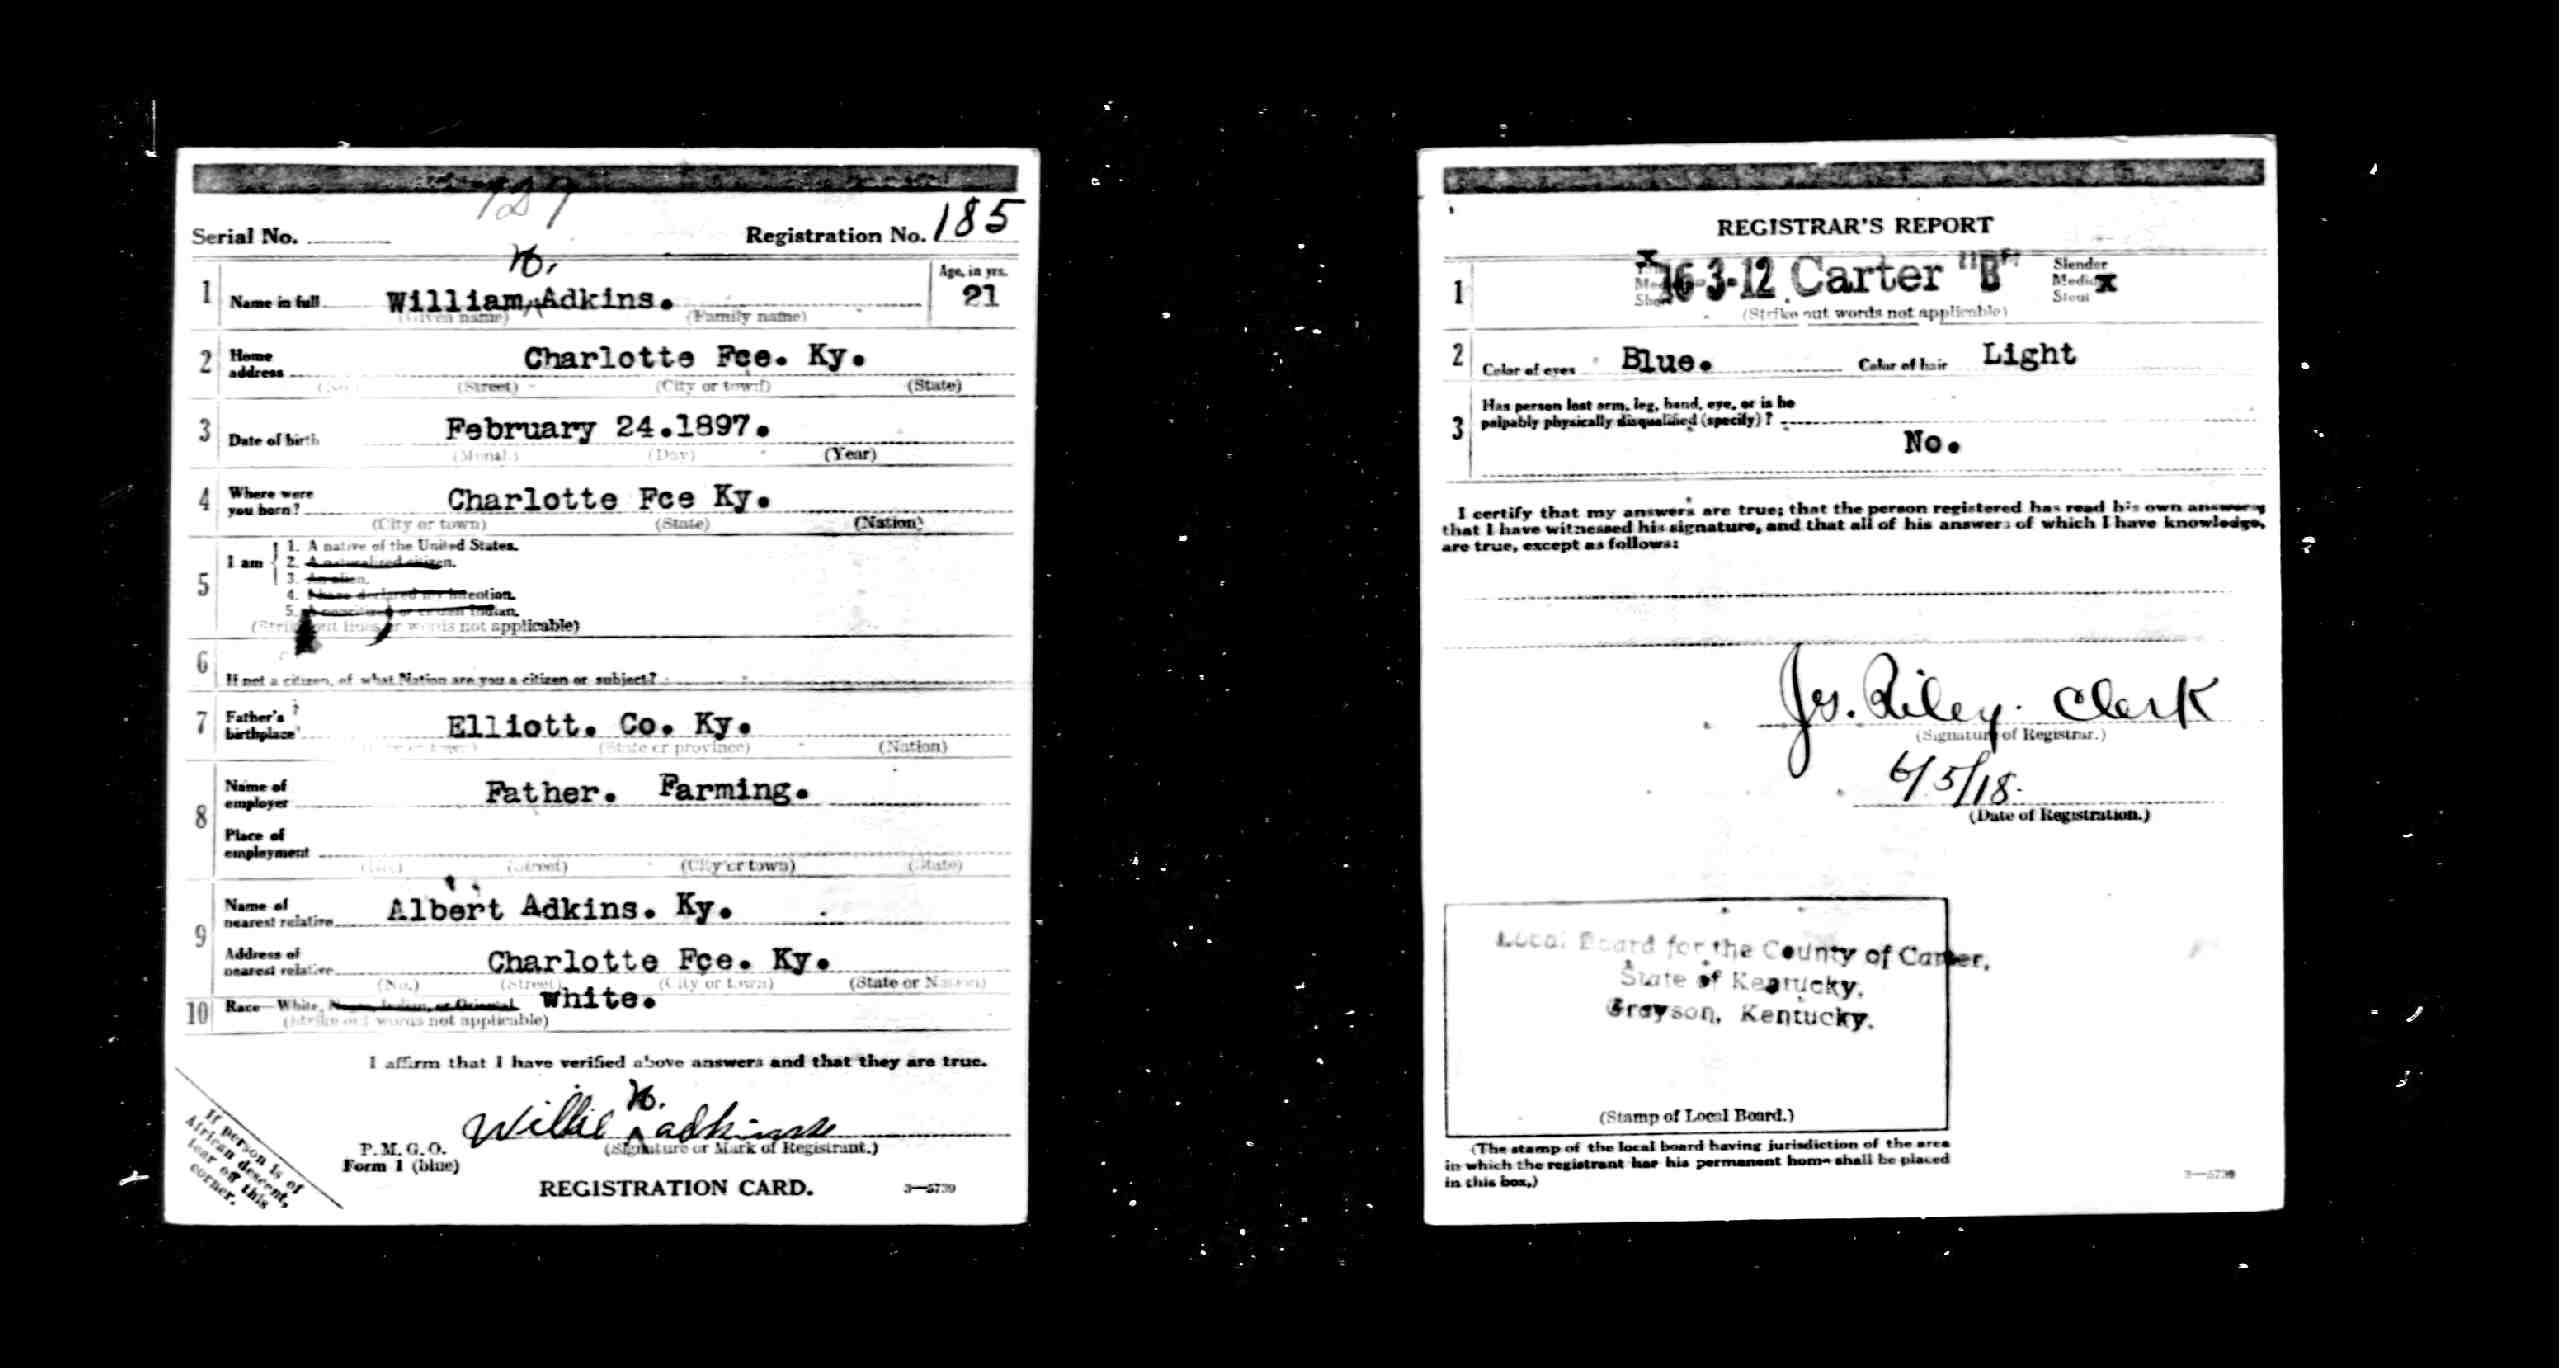 729
Serial No. Registration No. 185
H.
1 Name in full William, Adkins. Age, in yrs. 21
(Given name) (Family name)
2 Home address Charlotte Fce. Ky.
(No.) (Street) (City or town) (State)
3 Date of birth February 24.1897.
(Month) (Day) (Year)
4 Where were you born? Charlotte Fce Ky.
(City or town) (State) (Nation)
5 I am
1. A native of the United States.
2. A naturalized citizen.
3. An alien.
4. I have declared my intention.
5. A noncitizen or citizen Indian.
(Strike out lines or words not applicable)
6 If not a citizen, of what Nation are you a citizen or subject?
7 Father's birthplace Elliott. Co. Ky.
(City or town) (State or province) (Nation)
8 Name of employer Father. Farming.
Place of employment
(No.) (Street) (City or town) (State)
9 Name of nearest relative Albert Adkins. Ky.
Address of nearest relative Charlotte Fce. Ky.
(No.) (Street) (City or town) (State or Nation)
10 Race—White, Negro, Indian, or Oriental white.
(Strike out words not applicable)
I affirm that I have verified above answers and that they are true.
H.
Willie Adkins
(Signature or Mark of Registrant.)
P. M. G. O.
Form 1 (blue)
REGISTRATION CARD. 3—5739
If person is of
African descent,
tear off this
corner.
REGISTRAR'S REPORT
1 x 16-3-12 Carter "B" Slender
Medium x
Stout
(Strike out words not applicable)
2 Color of eyes Blue. Color of hair Light
3 Has person lost arm, leg, hand, eye, or is he
palpably physically disqualified (specify)?
No.
I certify that my answers are true; that the person registered has read his own answers;
that I have witnessed his signature, and that all of his answers of which I have knowledge,
are true, except as follows:
Js. Riley Clark
(Signature of Registrar.)
6/5/18.
(Date of Registration.)
Local Board for the County of Carter,
State of Kentucky,
Grayson, Kentucky.
(Stamp of Local Board.)
(The stamp of the local board having jurisdiction of the area
in which the registrant has his permanent home shall be placed
in this box.)
3—5739